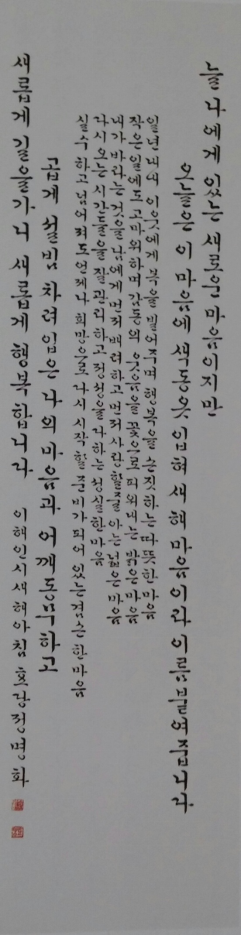 늘 나에게 있는 새로운 마음이지만
오늘은 이 마음에 색동옷 입혀 새해 마음이라 이름붙여줍니다
일년내내 이웃에게 복을 빌어주며 행복을 손짓하는 따뜻한 마음
작은일에도 고마워하며 감동의 웃음을 꽃으로 피워내는 밝은 마음
내가 바라는 것을 남에게 먼저 배려하고 먼저 사랑할 줄 아는 넓은 마음
다시 오는 시간들을 잘 관리하고 정성을 다하는 성실한 마음
실수하고 넘어져도 언제나 희망으로 다시 시작할 준비가 되어 있는 겸손한 마음
곱게 설빔 차려입은 나의 마음과 어깨동무하고
새롭게 길을 가니 새롭게 행복합니다 이해인 시 새해아침 정명화